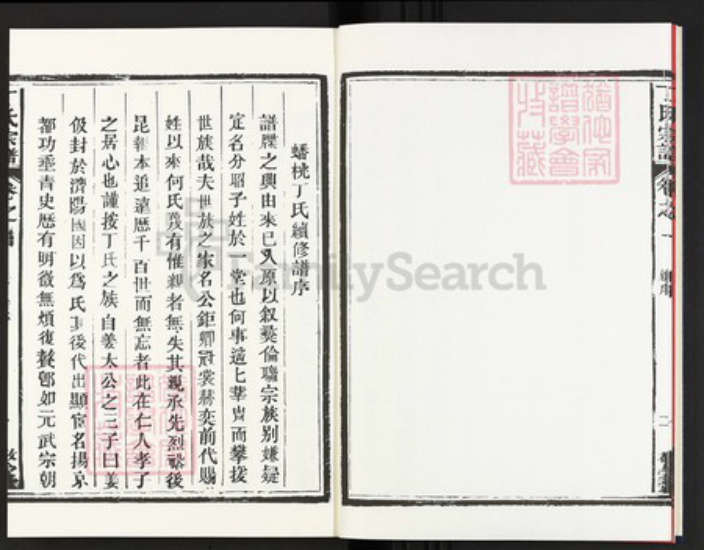 蟠桃丁氏續修譜序
譜牒之興由來已久原以叙彝倫聯宗族別嫌疑
定名分昭子姓於一堂也何事遠七葉而攀援
世族哉夫世族之家名公鉅卿冠裳赫奕前代賜
姓以來何氏蔑有惟親者無失其親承先烈啟後
昆報本追遠歷千百世而無忘者此在仁人孝子
之居心也謹按丁氏之族自姜太公之三子曰姜
伋封於濟陽國因以為氏其後代出顯宦名揚京
都功垂青史歷有明徵無煩復贅郎如元武宗朝
丁氏宗譜
卷之一
譜學會
收藏
FamilySearch